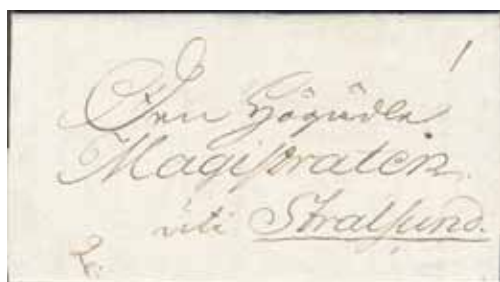 Den Högädle
Magistraten
uti Stralsund.